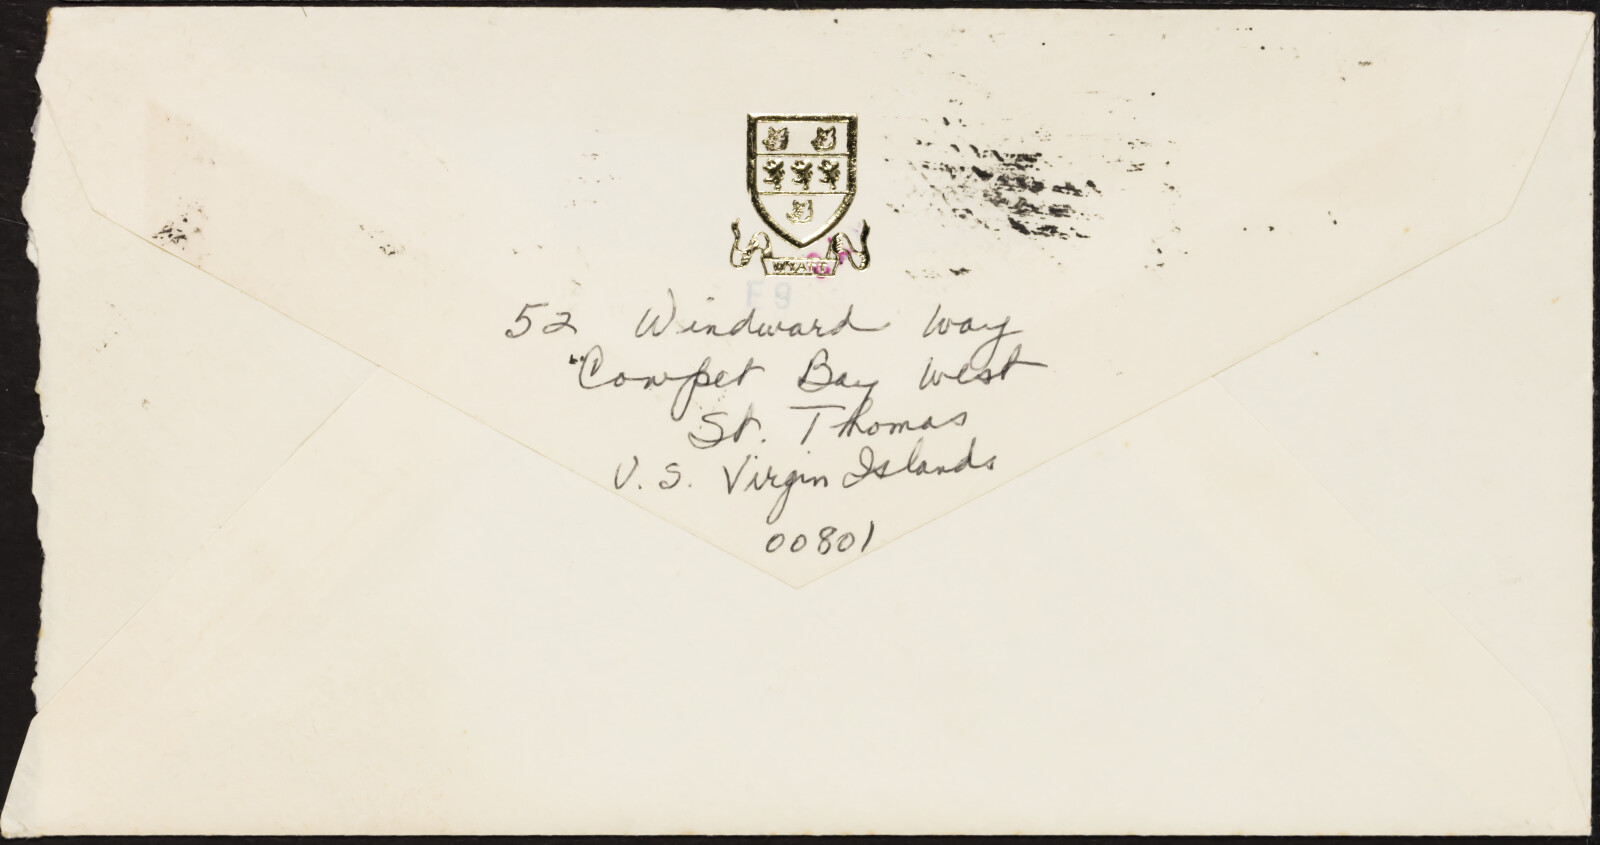 WYATT
E9
52 Windward Way
"Cowpet Bay West
St. Thomas
U.S. Virgin Islands
00801